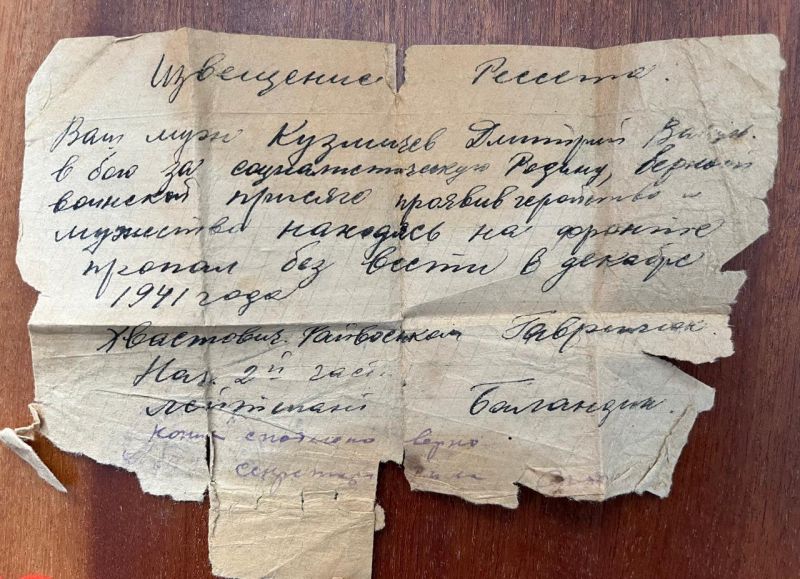 Извещение Рессета.
Ваш муж Кузмичев Дмитрий
в бою за социалистическую Родину, верный
воинской присяге проявив геройство и
мужество находясь на фронте
пропал без вести в декабре
1941 года
Хвастович. Райвоенком Гавричков.
Нач. 2й част.
лейтенант Баландин.
верно
секретарь